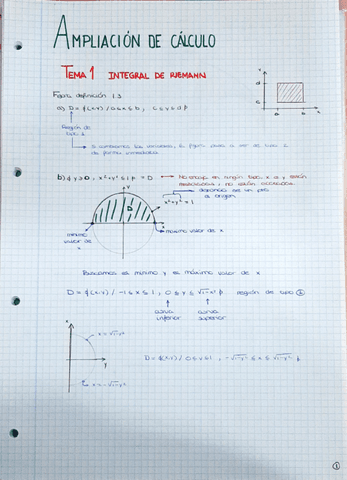 AMPLIACIÓN DE CÁLCULO
TEMA 1 INTEGRAL DE RIEMANN
definición 1.3
a) D = {(x,y) / a ≤ x ≤ b, c ≤ y ≤ d}
y
d
c
a b x
Región de
tipo 1
Si cambiamos las variables, la figura pasa a ser de tipo 2
de forma inmediata
b) {y ≥ 0, x² + y² ≤ 1} = D → No encaja en ningún tipo, x e y están
relacionadas y no están acotadas.
y
D
x² + y² = 1
x
mínimo
valor de
x
máximo valor de x
Buscamos el mínimo y el máximo valor de x
D = {(x,y) / -1 ≤ x ≤ 1, 0 ≤ y ≤ √1-x²} región de tipo 1
curva
inferior
curva
superior
x
x = √1-y²
y
x = -√1-y²
D = {(x,y) / 0 ≤ y ≤ 1, -√1-y² ≤ x ≤ √1-y²}
1